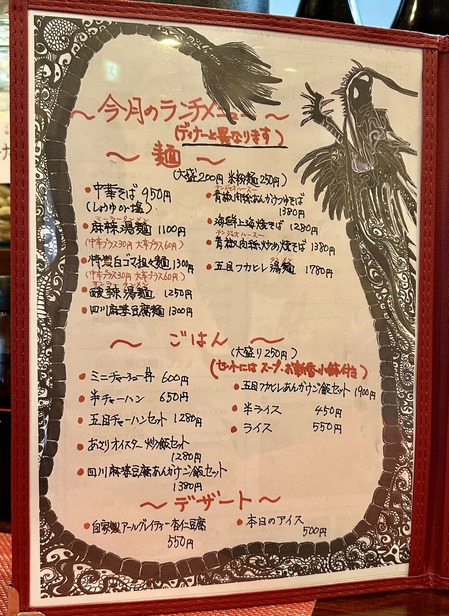 ～ 今月のランチメニュー ～
(ディナーと異なります)
～ 麺 ～
(大盛200円 米粉麺250円)
・中華そば 950円
(しょうゆor塩)
マーラータンメン
・麻辣湯麺 1100円
(中辛プラス30円 大辛プラス60円)
・特製白ゴマ担々麺 1300円
(中辛プラス30円 大辛プラス60円)
・酸辣湯麺 1250円
・四川麻婆豆腐麺 1300円
チンジャオロースー
・青椒肉絲あんかけつゆそば
1380円
・海鮮上海焼そば 1280円
チンジャオロースー
・青椒肉絲炒め焼そば 1380円
・五目フカヒレ湯麺 1780円
～ ごはん ～
(大盛り250円)
(セットにはスープ・お新香・小鉢付き)
・ミニチャーシュー丼 600円
・半チャーハン 650円
・五目チャーハンセット 1280円
・あさりオイスター炒飯セット
1280円
・四川麻婆豆腐あんかけご飯セット
1380円
・五目フカヒレあんかけご飯セット 1900円
・半ライス 450円
・ライス 550円
～ デザート ～
・自家製アールグレイティー杏仁豆腐
550円
・本日のアイス
500円